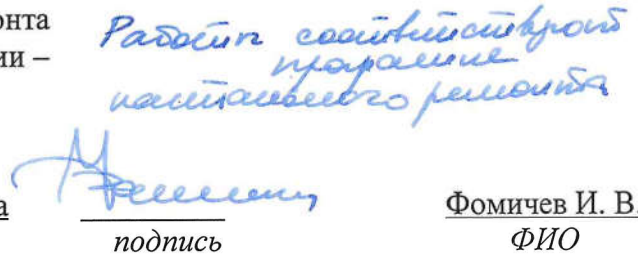 онта
ии –
Работы соответствуют
программе
капитального ремонта
а
Фомичев И. В.
подпись
ФИО